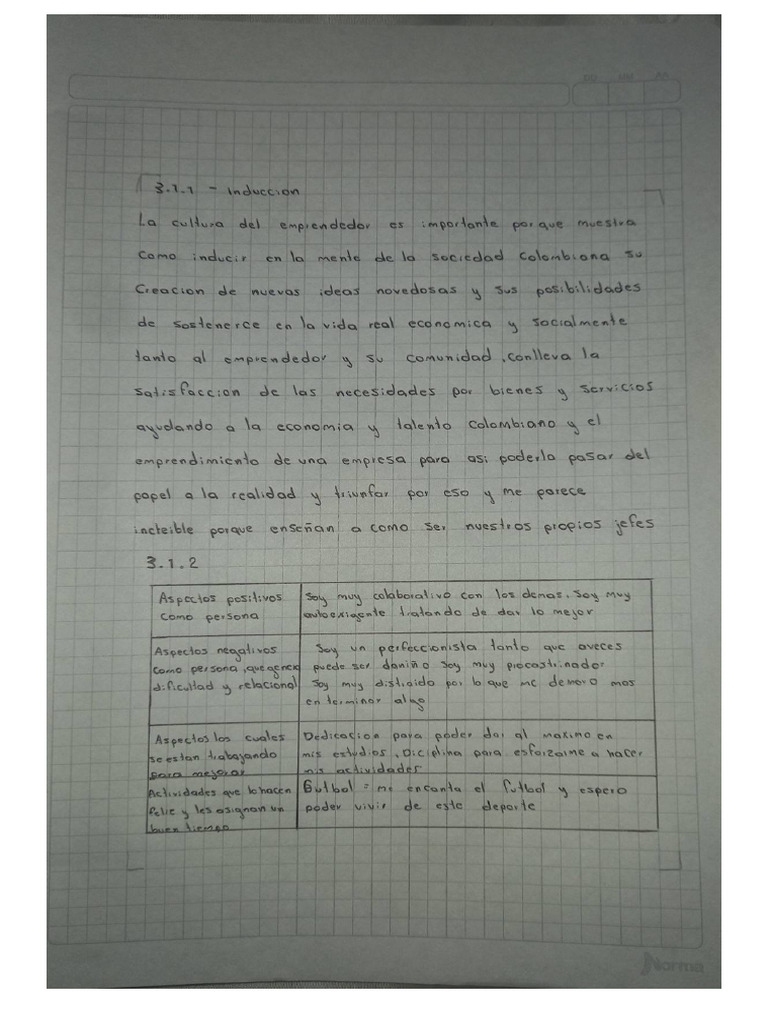 3.1.1 - Induccion
La cultura del emprendedor es importante porque muestra
como inducir en la mente de la sociedad Colombiana su
Creacion de nuevas ideas novedosas y sus posibilidades
de sostenerce en la vida real economica y socialmente
tanto al emprendedor y su comunidad, conlleva la
satisfaccion de las necesidades por bienes y servicios
ayudando a la economia y talento Colombiano y el
emprendimiento de una empresa para asi poderla pasar del
papel a la realidad y triunfar por eso y me parece
incteible porque enseñan a como ser nuestros propios jefes
3.1.2
Aspectos positivos
como persona
Soy muy colaborativo con los demas. Soy muy
autoexigente tratando de dar lo mejor
Aspectos negativos
como persona, que genera
dificultad y relacional
Soy un perfeccionista tanto que aveces
puede ser dañino Soy muy procastrinador
Soy muy distraido por lo que me demoro mas
en terminar algo
Aspectos los cuales
se estan trabajando
para mejorar
Dedicacion para poder dar al maximo en
mis estudios, Diciplina para esforzarme a hacer
mis actividades
Actividades que lo hacen
felic y les asignan un
buen tiempo
Futbol = me encanta el futbol y espero
poder vivir de este deporte
Norma